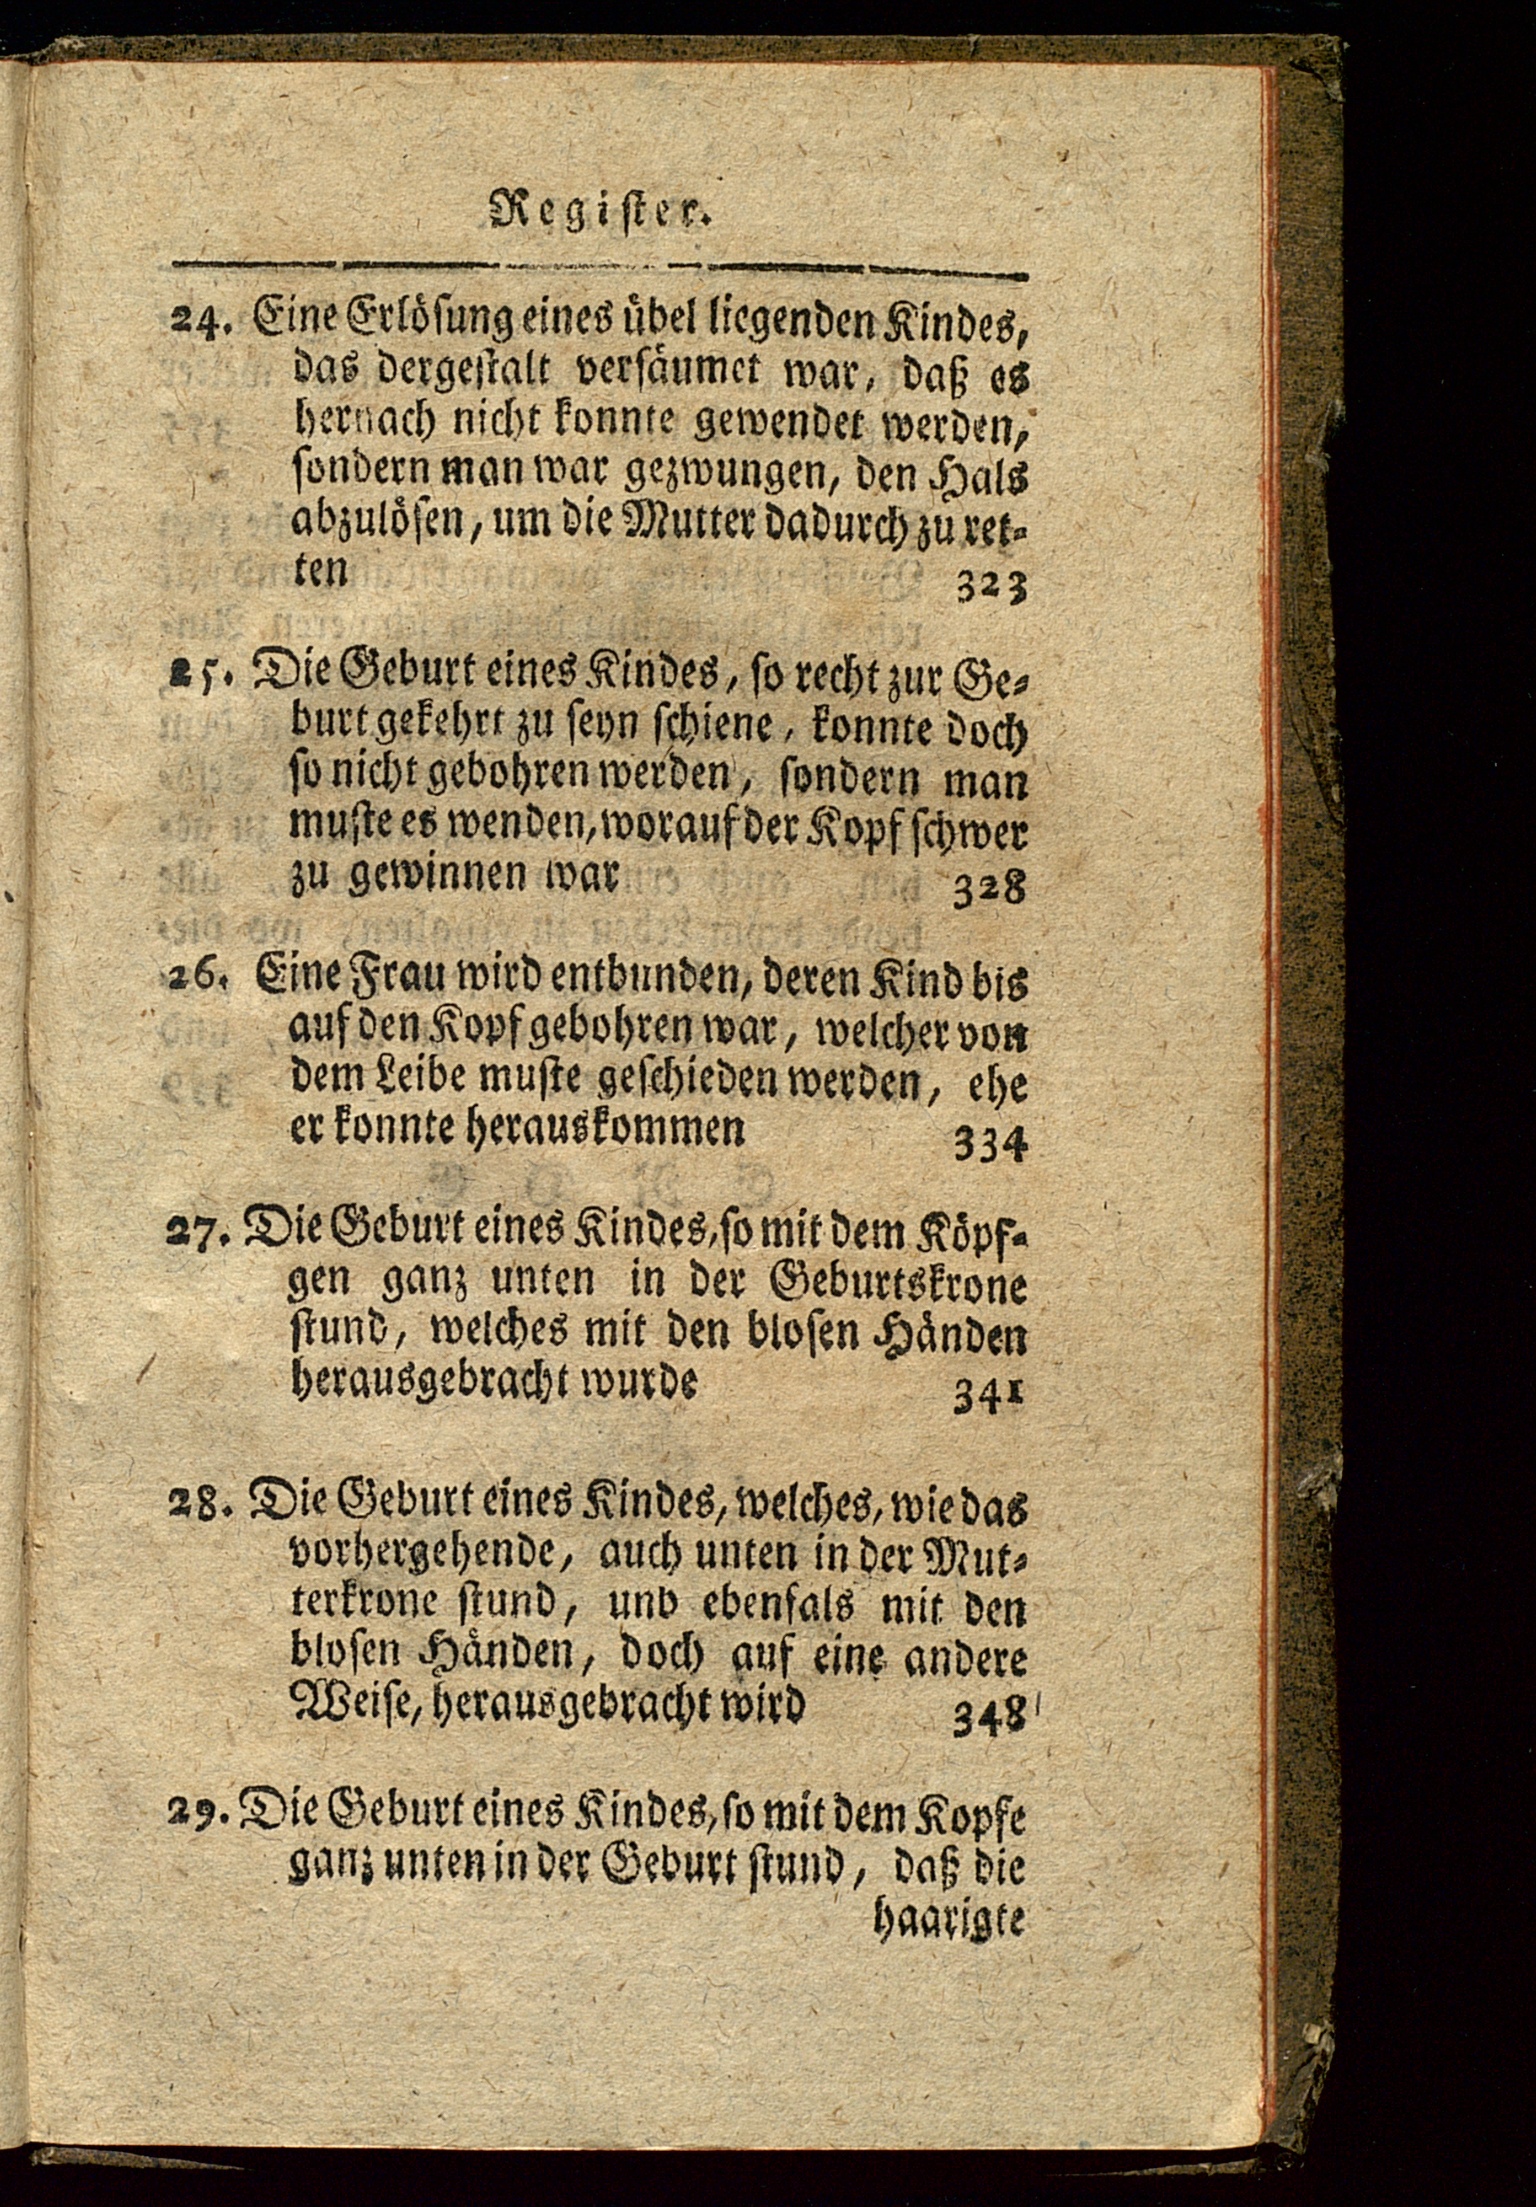 Register.
24. Eine Erlösung eines übel liegenden Kindes,
das dergestalt versäumet war, daß es
hernach nicht konnte gewendet werden,
sondern man war gezwungen, den Hals
abzulösen, um die Mutter dadurch zu ret-
ten 323
25. Die Geburt eines Kindes, so recht zur Ge-
burt gekehrt zu seyn schiene, konnte doch
so nicht gebohren werden, sondern man
muste es wenden, worauf der Kopf schwer
zu gewinnen war 328
26. Eine Frau wird entbunden, deren Kind bis
auf den Kopf gebohren war, welcher von
dem Leibe muste geschieden werden, ehe
er konnte herauskommen 334
27. Die Geburt eines Kindes, so mit dem Köpf-
gen ganz unten in der Geburtskrone
stund, welches mit den blosen Händen
herausgebracht wurde 341
28. Die Geburt eines Kindes, welches, wie das
vorhergehende, auch unten in der Mut-
terkrone stund, und ebenfals mit den
blosen Händen, doch auf eine andere
Weise, herausgebracht wird 348
29. Die Geburt eines Kindes, so mit dem Kopfe
ganz unten in der Geburt stund, daß die
haarigte